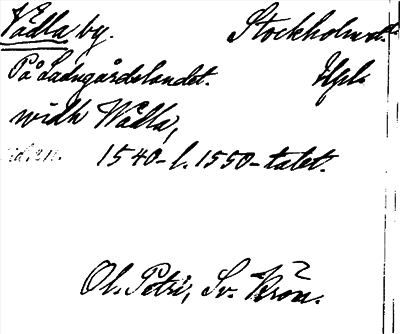 Vådla by. Stockholm
På Ladugårdslandet. Upl.
widh Wådla,
1540- l. 1550-talet.
Ol. Petri, Sv. Krön.